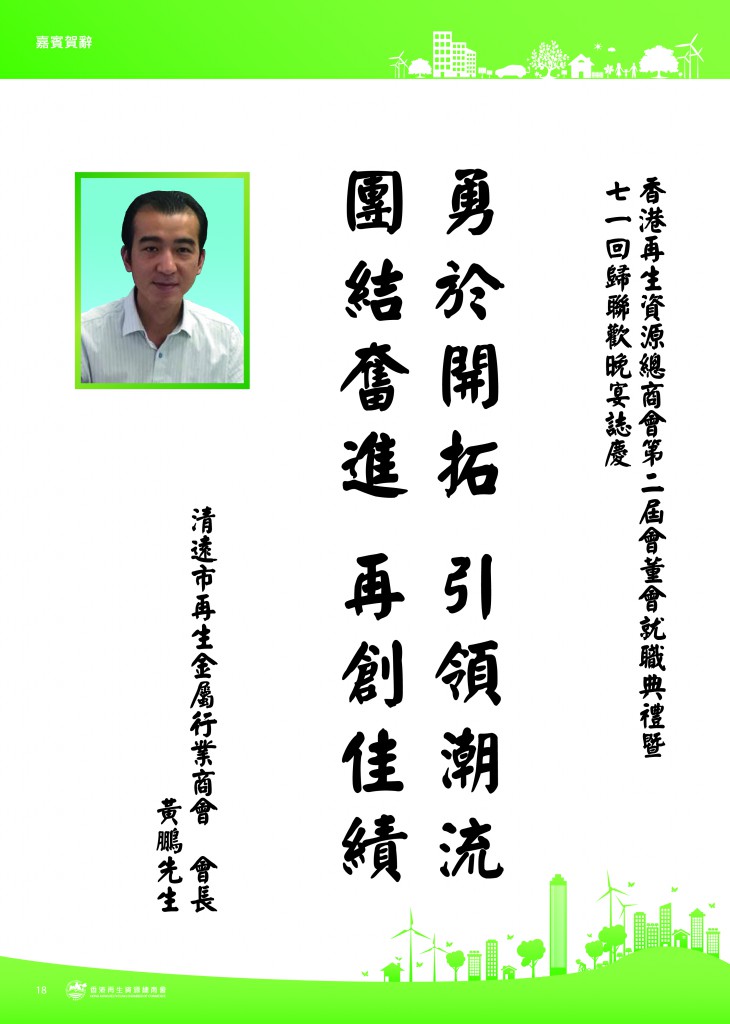 嘉賓賀辭
香港再生資源總商會第二屆會董會就職典禮暨
七一回歸聯歡晚宴誌慶
勇於開拓 引領潮流
團結奮進 再創佳績
清遠市再生金屬行業商會 會長
黃鵬先生
18
香港再生資源總商會